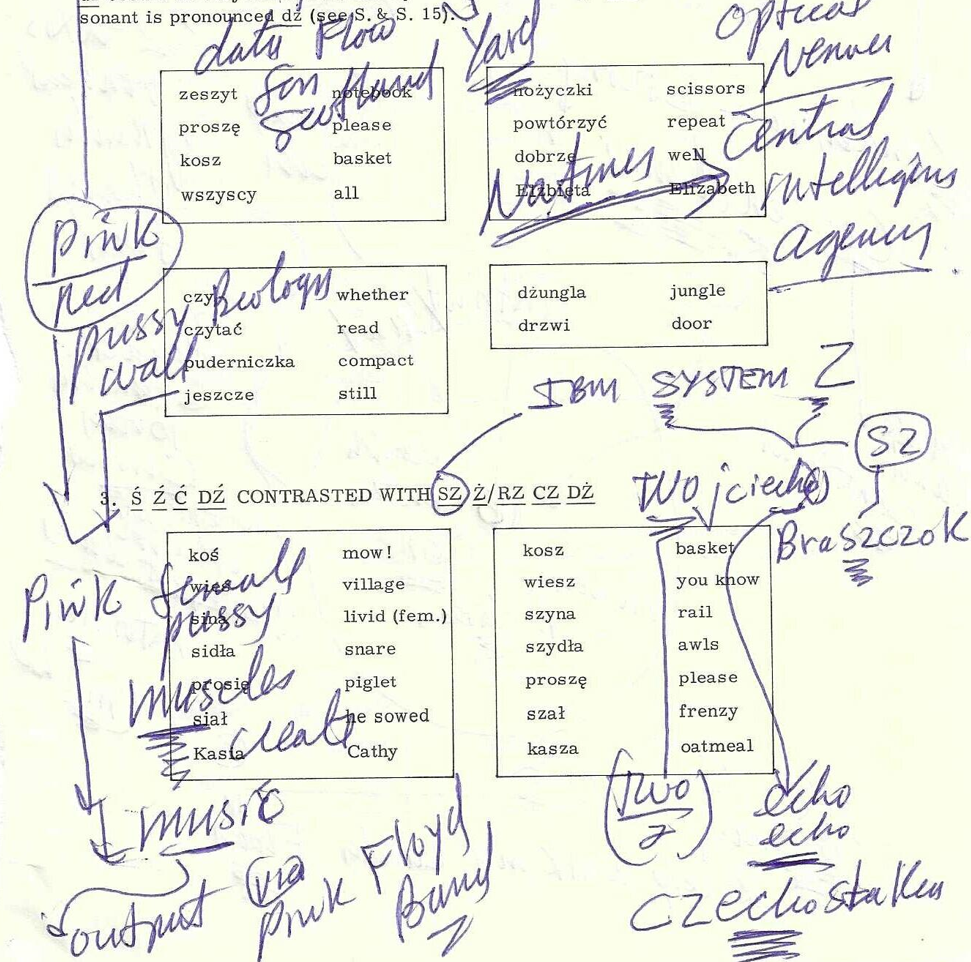 sonant is pronounced dź (see S. & S. 15).
data Flow
for
Scotland Yard
optical
Nerver
zeszyt notebook
proszę please
kosz basket
wszyscy all
nożyczki scissors
powtórzyć repeat
dobrze well
Elżbieta Elizabeth
Central
intelligens
agency
Pink
red
czy whether
czytać read
puderniczka compact
jeszcze still
pussy Biology
wall
dżungla jungle
drzwi door
IBM SYSTEM Z
SZ
3. Ś Ź Ć DŹ CONTRASTED WITH SZ Ż/RZ CZ DŻ
Wojciech
Braszczok
koś mow!
wieś village
sina livid (fem.)
sidła snare
prosię piglet
siał he sowed
Kasia Cathy
kosz basket
wiesz you know
szyna rail
szydła awls
proszę please
szał frenzy
kasza oatmeal
Pink female
pussy
muscles
create
music
output via
Pink Floyd
Band
two
2
echo
echo